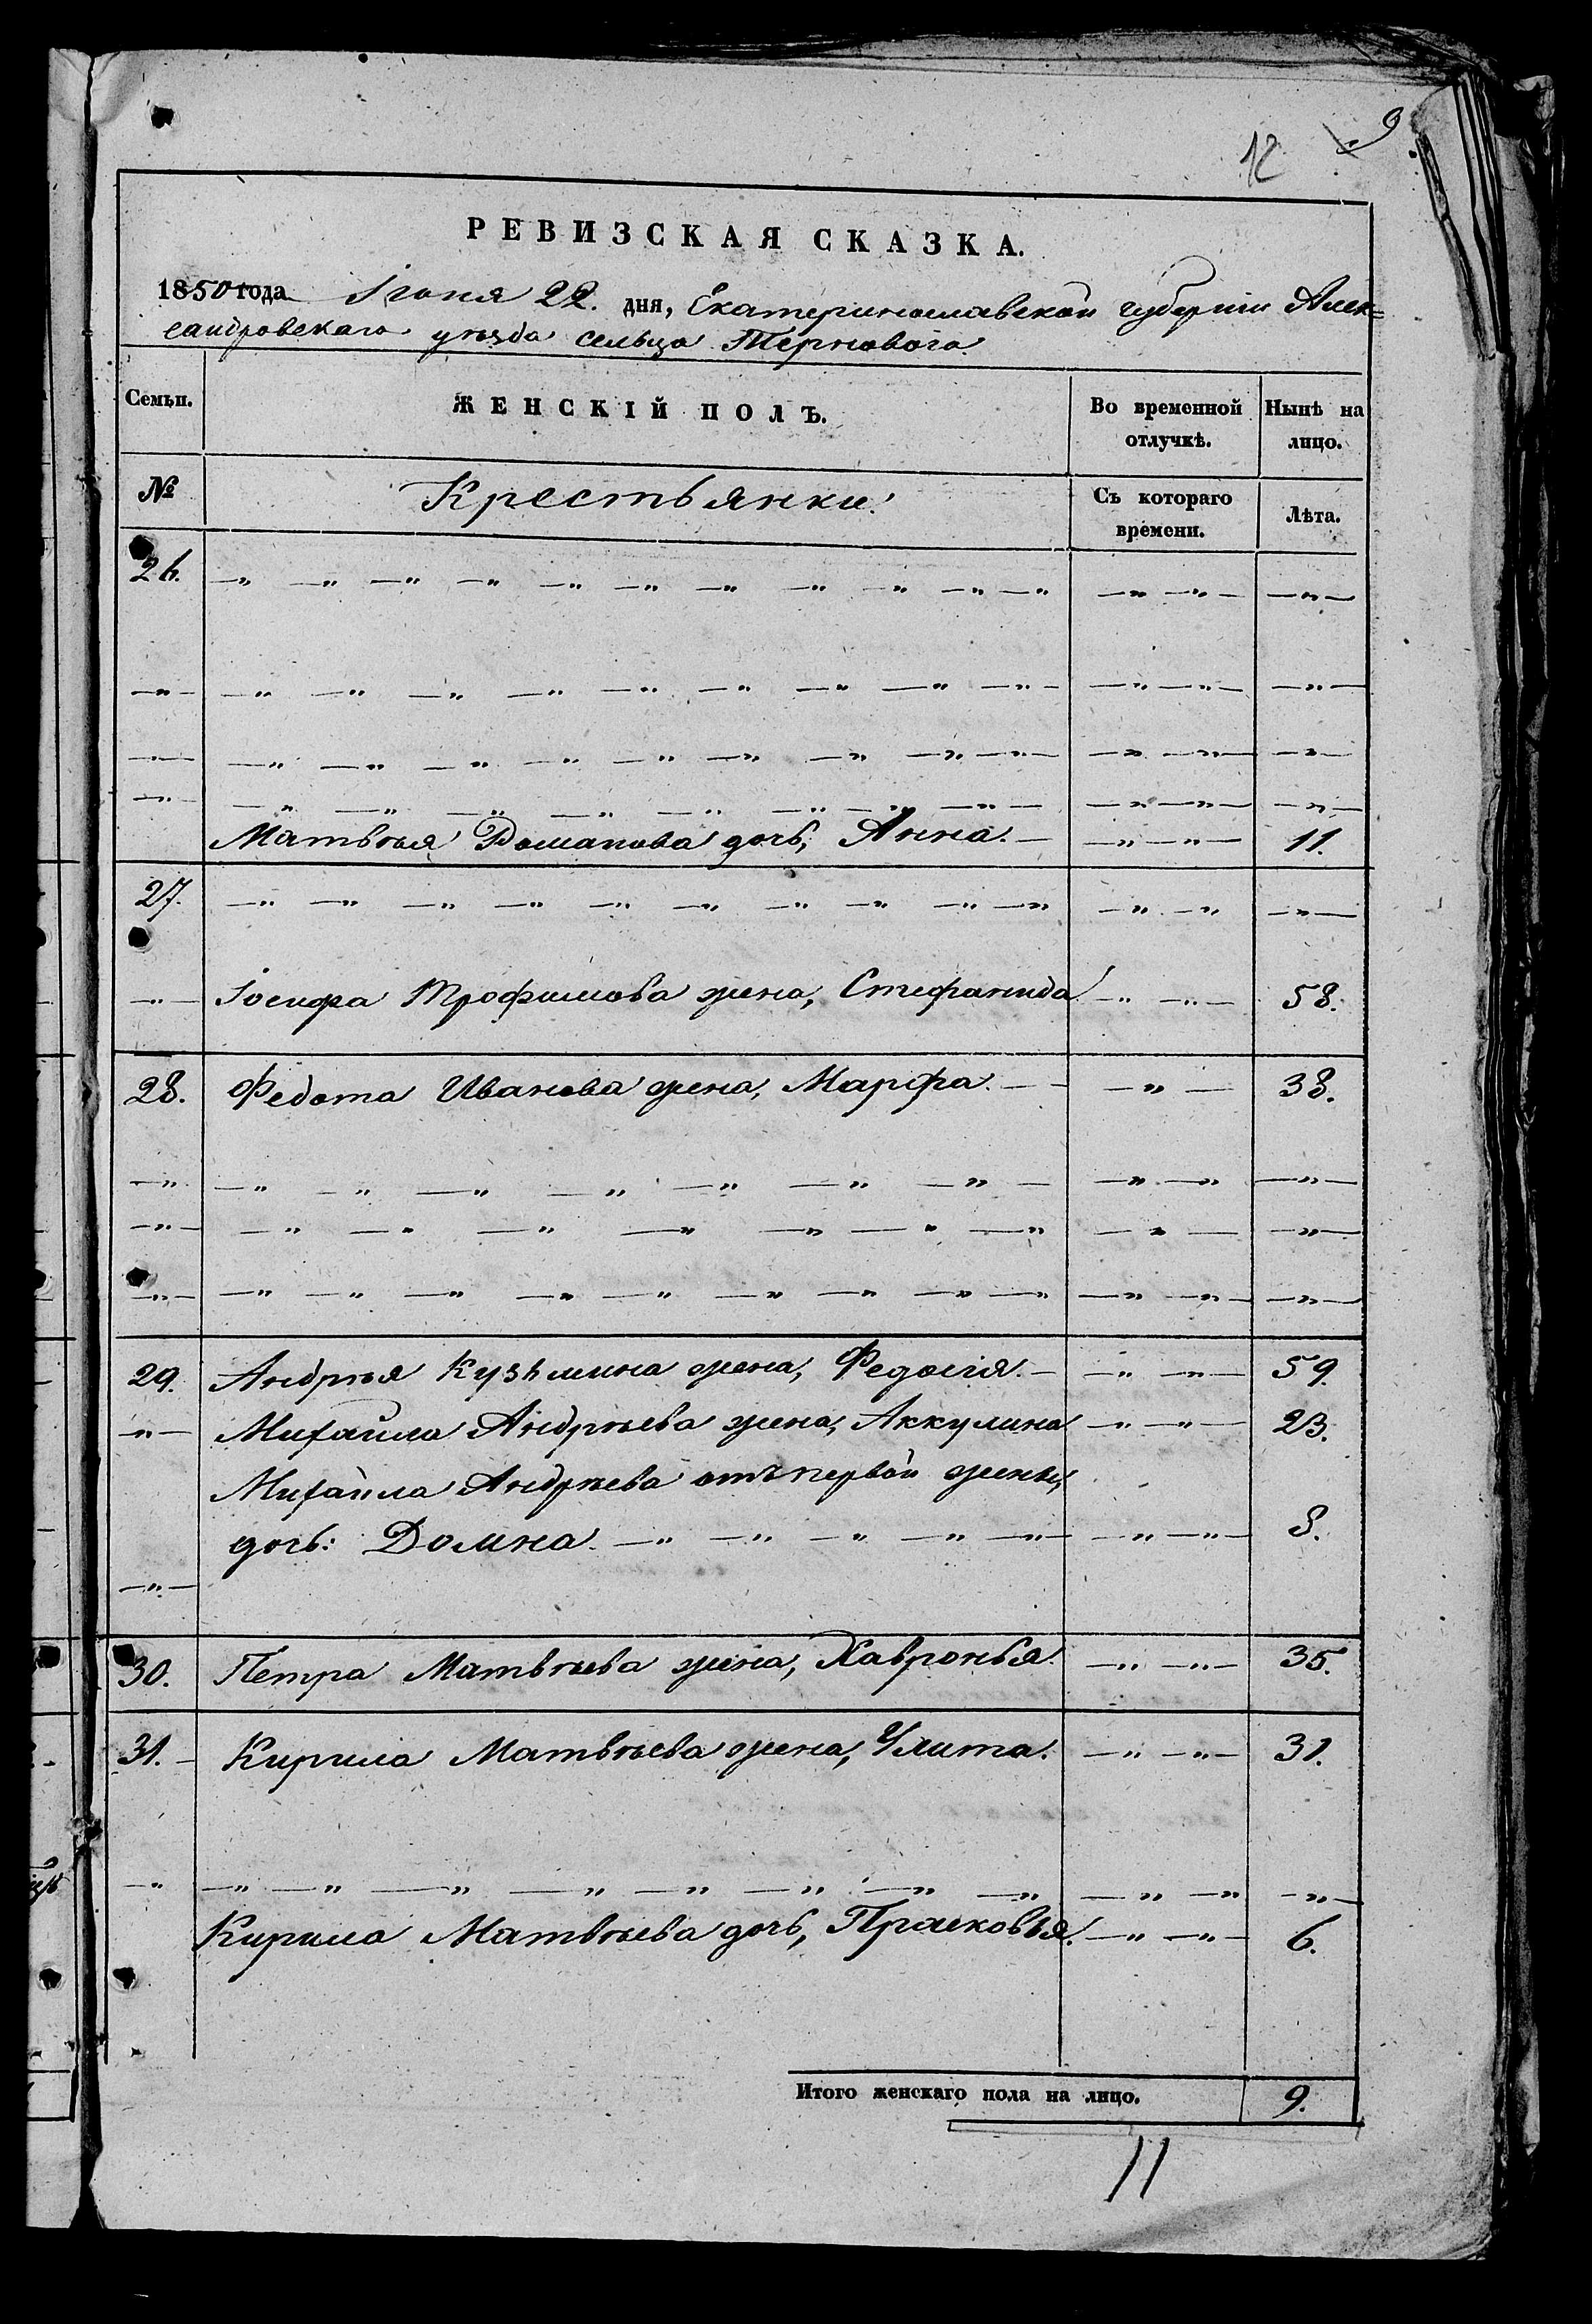 12 9
РЕВИЗСКАЯ СКАЗКА.
1850 года Іюня 22. дня, Екатеринославской губерніи Алек=
сандровскаго уѣзда сельца Терноваго.
Семьи. ЖЕНСКІЙ ПОЛЪ. Во временной отлучкѣ. Нынѣ на лицо.
№ Крестьянки. Съ котораго времени. Лѣта.
26. —„ —„ —„ —„ —„ —„ —„ —„ —„ —„ —„ —„ —„ — —„—
—„— —„ —„ —„ —„ —„ —„ —„ —„ —„— —„ —„— —„—
—„— —„ —„ —„ —„ —„ —„ —„ —„ —„— —„ —„— —„—
—„— —„ —„ —„ —„ —„ —„ —„ —„— —„ —„— —„—
Матвѣя Романова дочь, Анна. — —„ —„— 11.
27. —„ —„ —„ —„ —„ —„ —„ —„ —„ —„ —„ —„ —„—
—„— Іосифа Трофимова жена, Стефанида —„ —„— 58.
28. Федота Иванова жена, Марфа. — — —„ — 38.
—„ —„ —„ —„ —„ —„ —„ —„ — —„ —„ —„—
—„— —„ —„ —„ —„ —„ —„ —„ —„ — —„—
—„— —„ —„ —„ —„ —„ —„ —„ —„ —„ —„ —„— —„—
29. Андрѣя Кузьмина жена, Федосія. — —„ —„— 59.
—„— Михайла Андрѣева жена, Аккулина —„ —„— 23.
Михайла Андрѣева отъ первой жены,
дочь: Домна. —„ —„ —„ —„ —„— —„ —„— 8.
—„—
30. Петра Матвѣева жена, Хавронья. —„ —„— 35.
31. — Кирила Матвѣева жена, Улита. —„ —„— 31.
—„ —„ —„ —„ —„ —„ —„ —„ —„ —„ —„ —„—
Кирила Матвѣева дочь, Прасковья. —„ —„— 6.
Итого женскаго пола на лицо. 9.
11